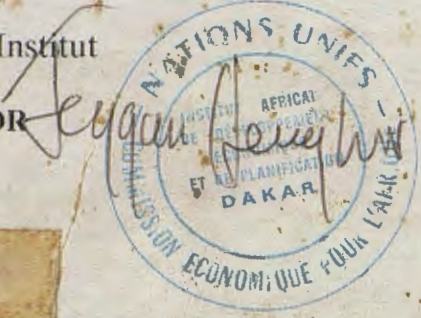 Institut
OR
NATIONS UNIES -
COMMISSION ECONOMIQUE POUR L'AFRIQUE
INSTITUT AFRICAIN
DE DEVELOPPEMENT
ECONOMIQUE
ET DE PLANIFICATION
DAKAR